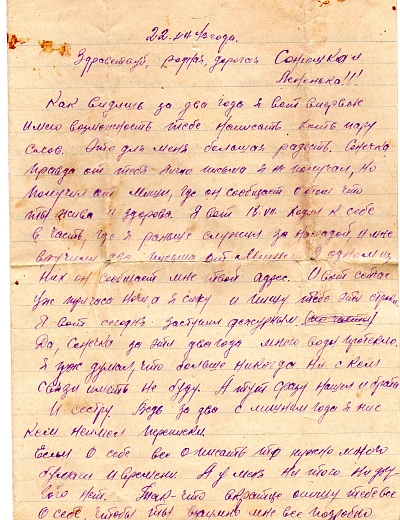 22.
Здравствуй, родная, дорогая Сонюшка и
Ленонька!!!
Как видишь за два года я вот впервые
имею возможность тебе написать хоть пару
слов. Это для меня большая радость. Сонечка
правда от тебя лично письма я не получал, но
получил от Миши, где он сообщает о том что
ты жива и здорова. Я вот ходил к себе
в часть, где я раньше служил за и мне
вручили два письма от Миши в одном из
них он сообщает мне твой адрес. И вот сейчас
уж три часа ночи а я сижу и пишу тебе эти строки.
Я вот сегодня заступил дежурным
Да, Сонечка за эти два года много воды протекло.
Я уж думал, что больше никогда ни с кем
связи иметь не буду. А тут сразу нашел и брата
и сестру. Ведь за два с лишним года я ни с
кем не имел переписки.
Если о себе все описать то нужно много
бумаги и времени. А у меня ни того ни дру-
гого нет. Так что вкратце опишу тебе все
о себе, чтобы ты взаимно мне все подробно